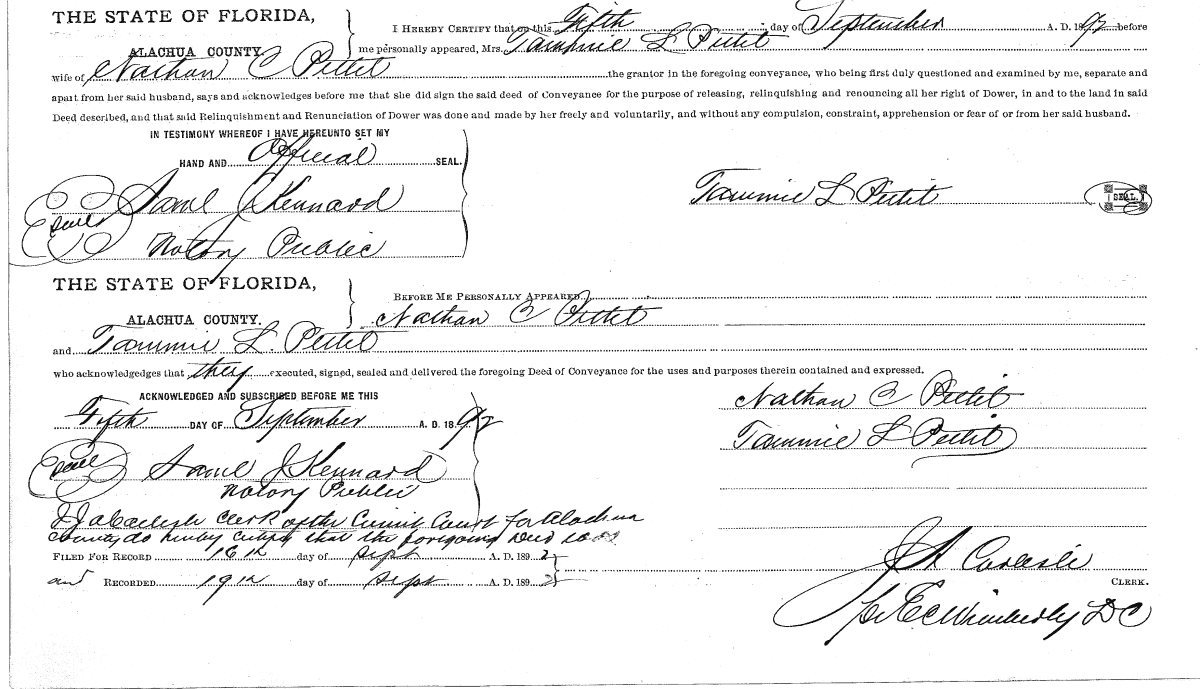 THE STATE OF FLORIDA,
ALACHUA COUNTY.
I HEREBY CERTIFY that on this Fifth day of September A. D. 1892 before
me personally appeared, Mrs. Tammie L Pettit
wife of Nathan C Pettit the grantor in the foregoing conveyance, who being first duly questioned and examined by me, separate and
apart from her said husband, says and acknowledges before me that she did sign the said deed of Conveyance for the purpose of releasing, relinquishing and renouncing all her right of Dower, in and to the land in said
Deed described, and that said Relinquishment and Renunciation of Dower was done and made by her freely and voluntarily, and without any compulsion, constraint, apprehension or fear of or from her said husband.
IN TESTIMONY WHEREOF I HAVE HEREUNTO SET MY
HAND AND Official SEAL.
Seal Saml J Kennard
Notary Public
Tammie L Pettit SEAL.
THE STATE OF FLORIDA,
ALACHUA COUNTY.
BEFORE ME PERSONALLY APPEARED
Nathan C Pettit
and Tammie L. Pettit
who acknowledgedges that they executed, signed, sealed and delivered the foregoing Deed of Conveyance for the uses and purposes therein contained and expressed.
ACKNOWLEDGED AND SUBSCRIBED BEFORE ME THIS
Fifth DAY OF September A. D. 1892
Seal Saml J Kennard
Notary Public
Nathan C Pettit
Tammie L Pettit
I J A Carlisle Clerk of the Circuit Court for Alachua
County do hereby certify that the foregoing Deed was
FILED FOR RECORD 16th day of Sept A. D. 1892
and RECORDED 19th day of Sept A. D. 1892
J A Carlisle
CLERK.
Wimberly DC